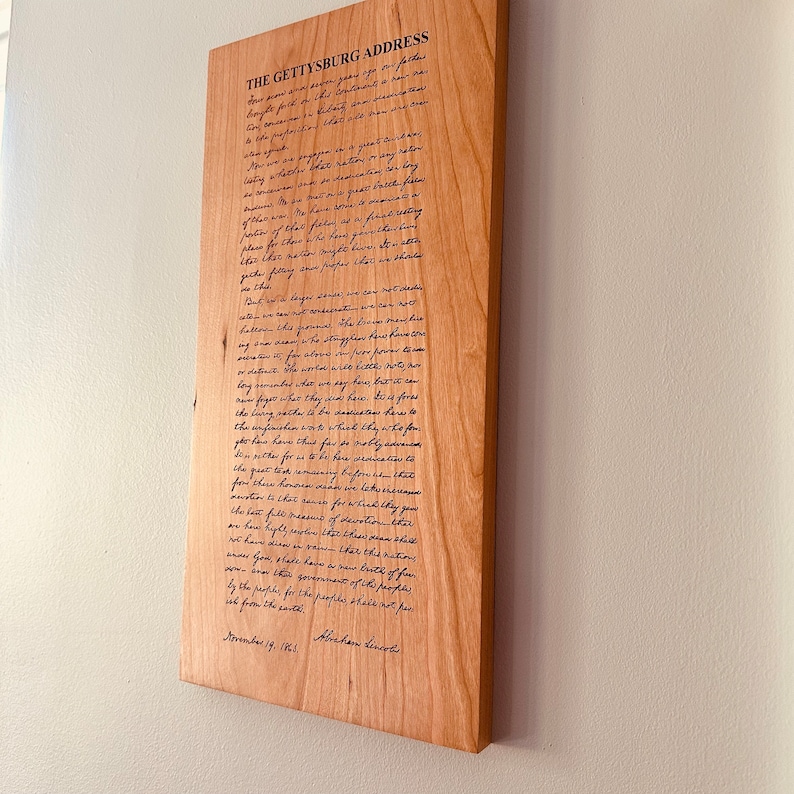 THE GETTYSBURG ADDRESS
Four score and seven years ago our fathers
brought forth on this continent, a new na-
tion, conceived in Liberty, and dedicated
to the proposition that all men are cre-
ated equal.
Now we are engaged in a great civil war,
testing whether that nation, or any nation
so conceived and so dedicated, can long
endure. We are met on a great battle-field
of that war. We have come to dedicate a
portion of that field, as a final resting
place for those who here gave their lives
that that nation might live. It is alto-
gether fitting and proper that we should
do this.
But, in a larger sense, we can not dedi-
cate— we can not consecrate— we can not
hallow— this ground. The brave men, liv-
ing and dead, who struggled here have con-
secrated it, far above our poor power to add
or detract. The world will little note, nor
long remember what we say here, but it can
never forget what they did here. It is for us
the living, rather, to be dedicated here to
the unfinished work which they who fou-
ght here have thus far so nobly advanced.
It is rather for us to be here dedicated to
the great task remaining before us— that
from these honored dead we take increased
devotion to that cause for which they gave
the last full measure of devotion— that
we here highly resolve that these dead shall
not have died in vain— that this nation,
under God, shall have a new birth of free-
dom— and that government of the people,
by the people, for the people, shall not per-
ish from the earth.
November 19, 1863. Abraham Lincoln